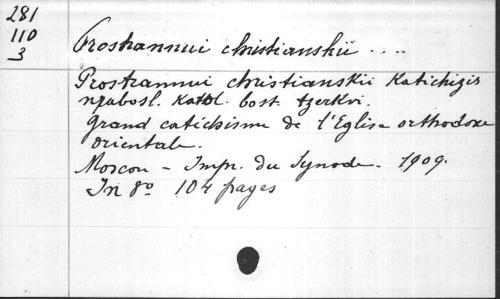 281
110
3
Prostrannui christianskii ....
Prostrannui christianskii Katichizis
npabosl. katol. bost tzerkvi.
Grand catéchisme de l'Eglise orthodoxe
orientale.
Moscou - Impr. du Synode. 1909.
In 8º 104 pages